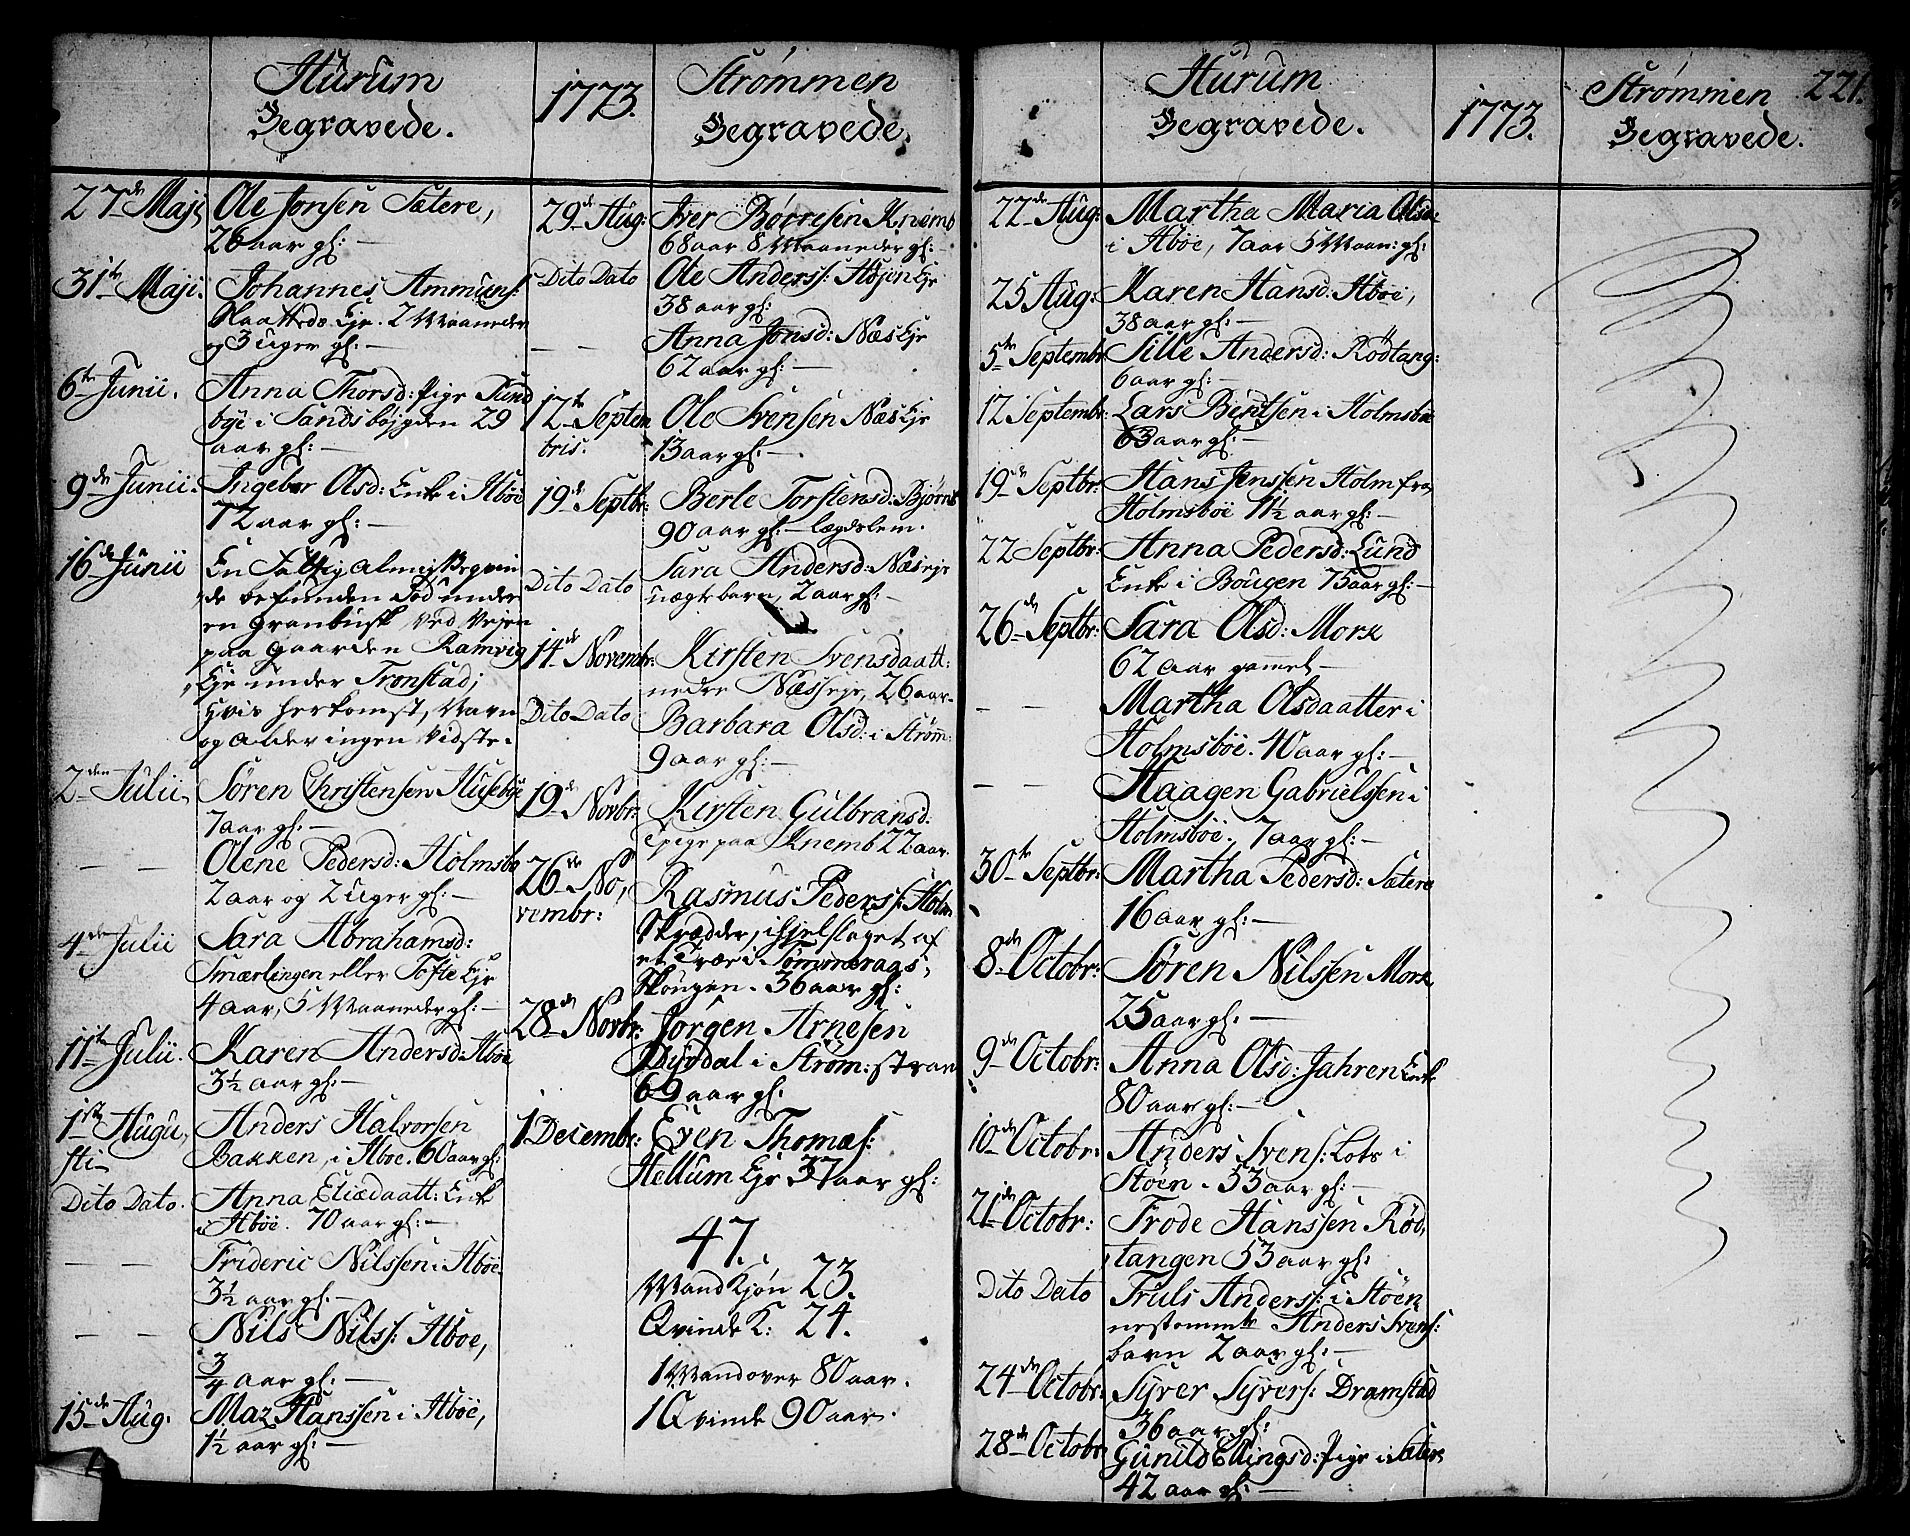 Hurum
Begravede.
27de Maji Ole Jonsen Sætere,
26 aar gl: —
31te Maji. Johannes Ammuns:
Slaatteds Eje. 2 Maaneder
og 3 Uger gl: —
6te Junii. Anna Thorsd: Pige Sund
bye i Sandsbøjgden 29
aar gl: —
9de Junii. Ingebor Olsd: Enke i Aboe
72 aar gl: —
16de Junii En Fattig almisse qvin
de befunden død under
en Granbusk ved Vejen
paa Gaarden Ramvig
Eje under Tronstad;
hvis herkomst, Navn
og alder ingen vidste.
2den Julii, Søren Christensen Huseboe
7 aar gl: —
— — Olene Pedersd: Holmsbo
2 aar og 2 Uger gl: —
4de Julii Sara Abrahamsd:
Smærlingen eller Tofte Eje
4 aar, 5 Maaneder gl: —
11te Julii. Karen Andersd: Aboe
3½ aar gl: —
1ste Augu, Anders Halvorsen
sti Bakken, i Aboe. 60 aar gl:
Dito Dato. Anna Eliædaatt: Enke
i Aboe. 70 aar gl: —
— — Frideric Nilssen i Aboe.
3½ aar gl: —
— — Nils Nilss: Aboe,
3/4 aar gl: —
15de Aug: Maz Hanssen i Aboe,
1½ aar gl: —
1773.
Strømmen
Begravede.
29de Aug: Iver Børresen Knemb
68 aar 8 Maaneder gl: —
Dito Dato Ole Anderss: Højen Eje
38 aar gl: —
— — Anna Jonsd: Næs Eje
62 aar gl: —
12te Septem Ole Svensen Næs Eje
bris. 13 aar gl: —
19de Septbr: Berle Torstensd: Bjørne
90 aar gl: — lægdslem.
Dito Dato Sara Andersd: Næs eje
uægte barn, 2 aar gl: —
14de Novembr: Kirsten Svensdaatt:
nedre Næs eje, 26 aar.
Dito Dato Barbara Olsd: i Strøm:
9 aar gl: —
19de Novbr: Kirsten Gulbransd:
pige paa Knemb 22 aar.
26de No, Rasmus Peders: Holm
vembr: Skrædder, ihjelslaget af
et Træ i Tømmeraas,
Skougen. 36 aar gl:
28de Novbr: Jørgen Arnesen
Dypdal i Strøm: stran
69 aar gl:
1 Decembr: Even Thomæs:
Hellum Eje 37 aar gl:
47.
Mandkjøn 23.
Qvinde K: 24.
1 Mand over 80 aar.
1 Qvinde 90 aar.
Hurum
Begravede.
22de Aug: Martha Maria Olsd:
i Aboe, 7 aar 5 Maan: gl:
25 Aug: Karen Hansd: Aboe,
38 aar gl: —
5te Septembr Sille Andersd: Rødtang:
6 aar gl: —
12 Septembr: Lars Bentsen i Holmsboe
63 aar gl: —
19de Septbr: Hans Jenssen Holm fra
Holmsboe 1½ aar gl: —
22 Septbr: Anna Pedersd: Lund
Enke i Bougen 75 aar gl: —
26de Septbr: Sara Olsd: Mørk
62 aar gamel —
— — Martha Olsdaatter i
Holmsboe. 40 aar gl: —
— — Haagen Gabrielssen i
Holmsboe. 7 aar gl: —
30te Septbr: Martha Pedersd: Sætere
16 aar gl: —
8de Octobr: Søren Nilssen Mork
25 aar gl: —
9de Octobr: Anna Olsd: Jahren Enke
80 aar gl: —
10de Octobr: Anders Svens: Lots i
Støen. 53 aar gl: —
21de Octobr: Frode Hanssen Rød,
tangen 53 aar gl:
Dito Dato Truls Anders: i Støen
nestommte Anders Svens:
barn 2 aar gl: —
24de Octobr: Syver Syvers: Dramstad
36 aar gl:
28de Octobr Gunild Ellingsd: Pige i Sætere
42 aar gl: —
1773.
Strømmen
Begravede.
221.